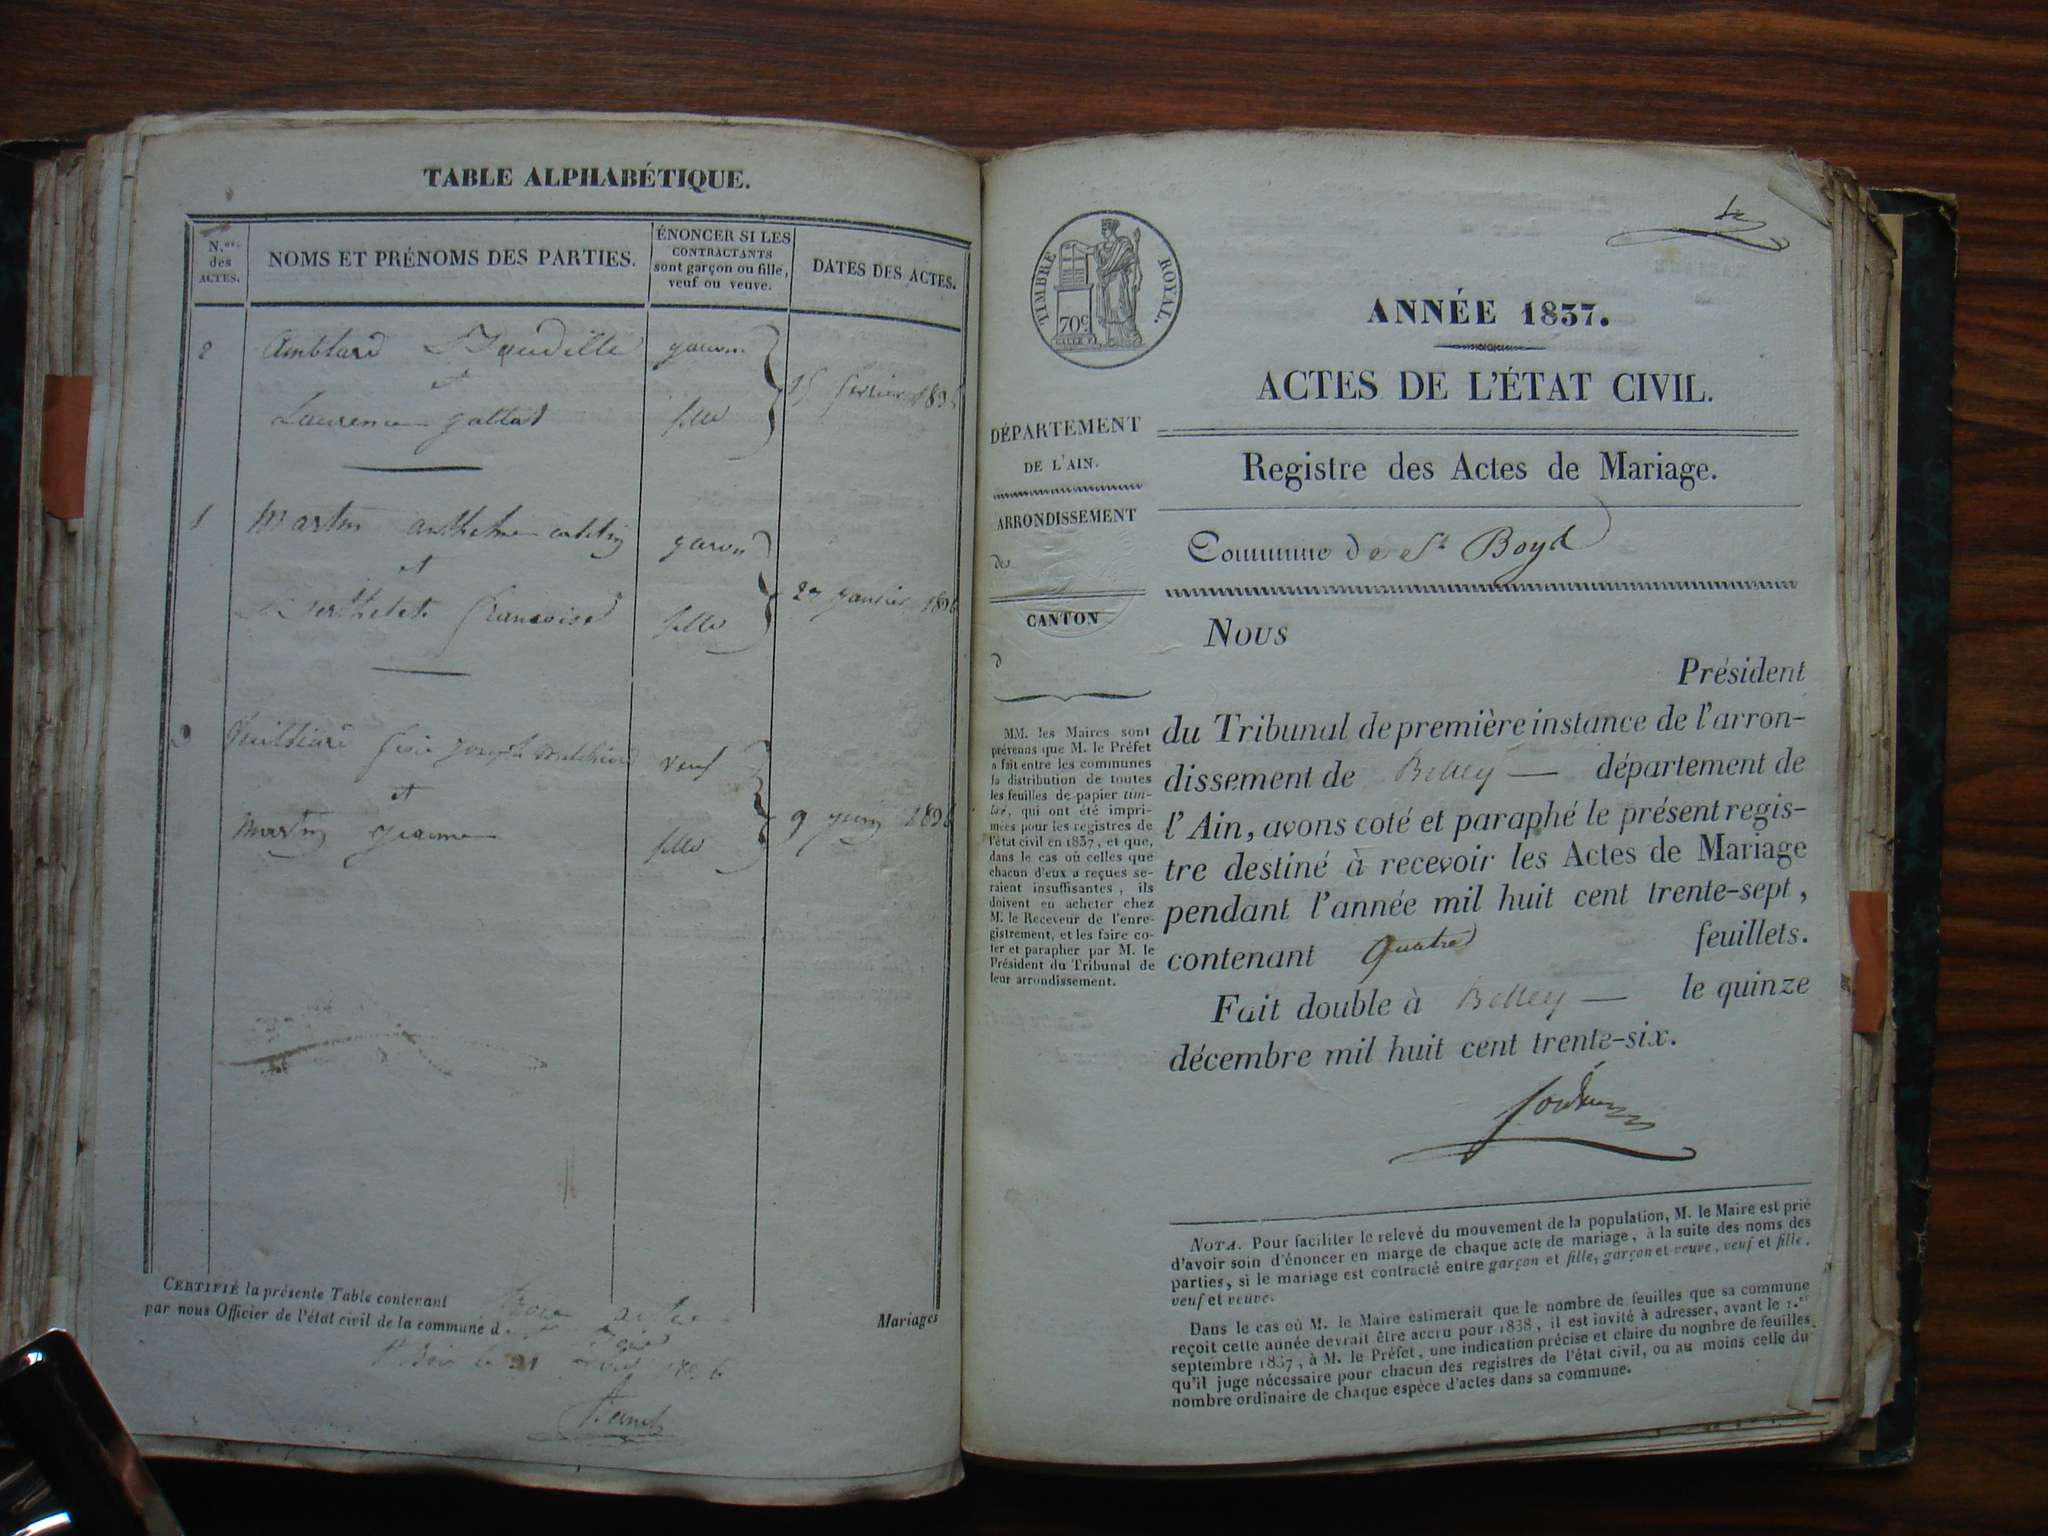 TABLE ALPHABÉTIQUE.
N.os des ACTES.
NOMS ET PRÉNOMS DES PARTIES.
ÉNONCER SI LES CONTRACTANTS sont garçon ou fille, veuf ou veuve.
DATES DES ACTES.
2 Amblard garçon
et
Laurence fille
15 février 183
1 Martin anthelme garçon
et
Berthelet françoise fille
27 janvier 1836
3 joseph melchior veuf
et
Martin jeanne fille
9 juin 1836
CERTIFIÉ la présente Table contenant trois actes
par nous Officier de l'état civil de la commune d Mariages
1836
TIMBRE ROYAL.
70c
ANNÉE 1837.
ACTES DE L'ÉTAT CIVIL.
DÉPARTEMENT
DE L'AIN.
ARRONDISSEMENT
de
CANTON
d
Registre des Actes de Mariage.
Commune de St Boys
Nous
Président
du Tribunal de première instance de l'arron-
dissement de Belley — département de
l'Ain, avons coté et paraphé le présent regis-
tre destiné à recevoir les Actes de Mariage
pendant l'année mil huit cent trente-sept,
contenant quatre feuillets.
Fait double à Belley — le quinze
décembre mil huit cent trente-six.
MM. les Maires sont
prévenus que M. le Préfet
a fait entre les communes
la distribution de toutes
les feuilles de papier tim-
bré, qui ont été impri-
mées pour les registres de
l'état civil en 1837, et que,
dans le cas où celles que
chacun d'eux a reçues se-
raient insuffisantes, ils
doivent en acheter chez
M. le Receveur de l'enre-
gistrement, et les faire co-
ter et parapher par M. le
Président du Tribunal de
leur arrondissement.
NOTA. Pour faciliter le relevé du mouvement de la population, M. le Maire est prié
d'avoir soin d'énoncer en marge de chaque acte de mariage, à la suite des noms des
parties, si le mariage est contracté entre garçon et fille, garçon et veuve, veuf et fille,
veuf et veuve.
Dans le cas où M. le Maire estimerait que le nombre de feuilles que sa commune
reçoit cette année devrait être accru pour 1838, il est invité à adresser, avant le 1.er
septembre 1837, à M. le Préfet, une indication précise et claire du nombre de feuilles
qu'il juge nécessaire pour chacun des registres de l'état civil, ou au moins celle du
nombre ordinaire de chaque espèce d'actes dans sa commune.